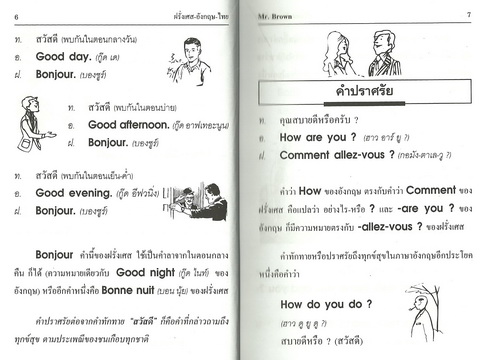 6
ฝรั่งเศส-อังกฤษ-ไทย
ท. สวัสดี (พบกันในตอนกลางวัน)
อ. Good day. (กู๊ด เด)
ฝ. Bonjour. (บองชูร์)
ท. สวัสดี (พบกันในตอนบ่าย)
อ. Good afternoon. (กู๊ด อาฟเทอะนูน)
ฝ. Bonjour. (บองชูร์)
ท. สวัสดี (พบกันในตอนเย็น-ค่ำ)
อ. Good evening. (กู๊ด อีฟวนิ่ง)
ฝ. Bonjour. (บองชูร์)
Bonjour คำนี้ของฝรั่งเศส ใช้เป็นคำลาจากในตอนกลาง
คืน ก็ได้ (ความหมายเดียวกับ Good night (กู๊ด ไนท์) ของ
อังกฤษ) หรืออีกคำหนึ่งคือ Bonne nuit (บอน นุ้ย) ของฝรั่งเศส
คำปราศรัยต่อจากคำทักทาย "สวัสดี" ก็คือคำที่กล่าวถามถึง
ทุกข์สุข ตามประเพณีของชนเกือบทุกชาติ
Mr. Brown
7
คำปราศรัย
ท. คุณสบายดีหรือครับ ?
อ. How are you ? (ฮาว อาร์ ยู ?)
ฝ. Comment allez-vous ? (กอมัง-ตาเล-วู ?)
คำว่า How ของอังกฤษ ตรงกับคำว่า Comment ของ
ฝรั่งเศส คือแปลว่า อย่างไร-หรือ ? และ -are you ? ของ
อังกฤษ ก็มีความหมายตรงกับ -allez-vous ? ของฝรั่งเศส
คำทักทายหรือปราศรัยถึงทุกข์สุขในภาษาอังกฤษอีกประโยค
หนึ่งคือคำว่า
How do you do ?
(ฮาว ดู ยู ดู ?)
สบายดีหรือ ? (สวัสดี)